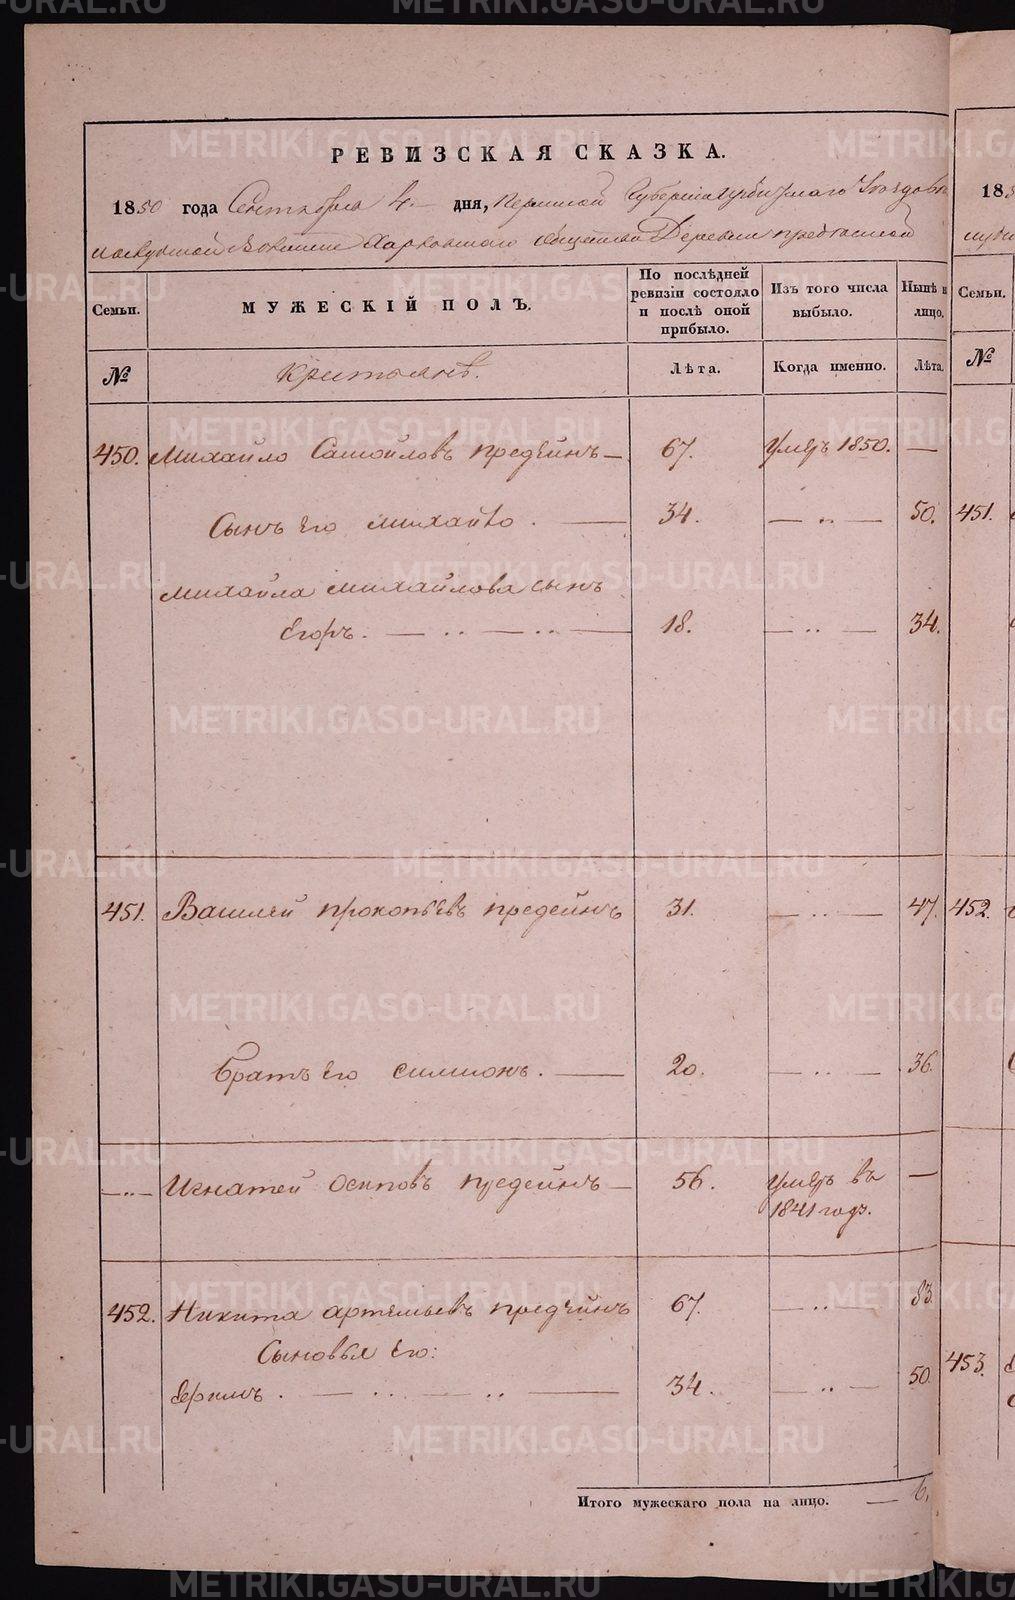 РЕВИЗСКАЯ СКАЗКА.
1850 года Сентября 4. дня, Пермской Губернiи Ирбитскаго Уезда
Волости Харловскаго общества Деревни Предеиной
Семьи.
МУЖЕСКІЙ ПОЛЪ.
По послѣдней ревизіи состояло и послѣ оной прибыло.
Изъ того числа выбыло.
Нынѣ на лицо.
№
Крестьянѣ.
Лѣта.
Когда именно.
Лѣта.
450. Михайло Самойловъ предеинъ — 67. Умеръ 1850. —
Сынъ Его михайло . — 34. — „ — 50.
Михайла михайлова сынъ
Егоръ. — .. — .. — 18. — .. — 34.
451. Василей прокопьевъ предеинъ 31. — .. — 47.
братъ Его симионъ. — 20. — .. — 36.
—„— Игнатей осиповъ предеинъ — 56. Умеръ въ —
1841 годъ.
452. Никита артемьевъ предеинъ 67. — .. — 83.
Сыновья Его:
— .. — .. — 34. — .. — 50.
Итого мужескаго пола на лицо. — 6.
185
Семьи.
№
451.
452.
453.
METRIKI.GASO-URAL.RU